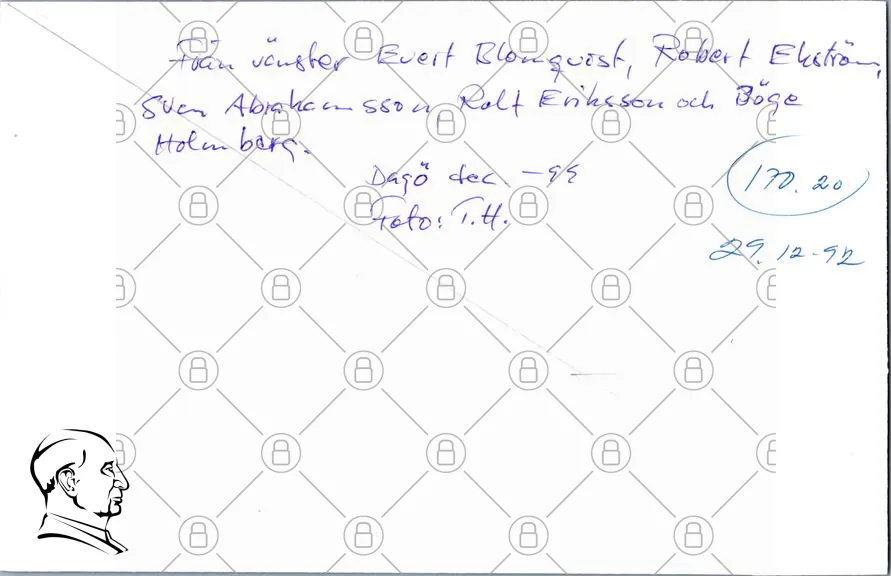 Från vänster Evert Blomqvist, Robert Ekström,
Sven Abrahamsson, Rolf Eriksson och Böge
Holmberg.
Dagö dec -99
Foto: T.H.
170.20
29.12-92